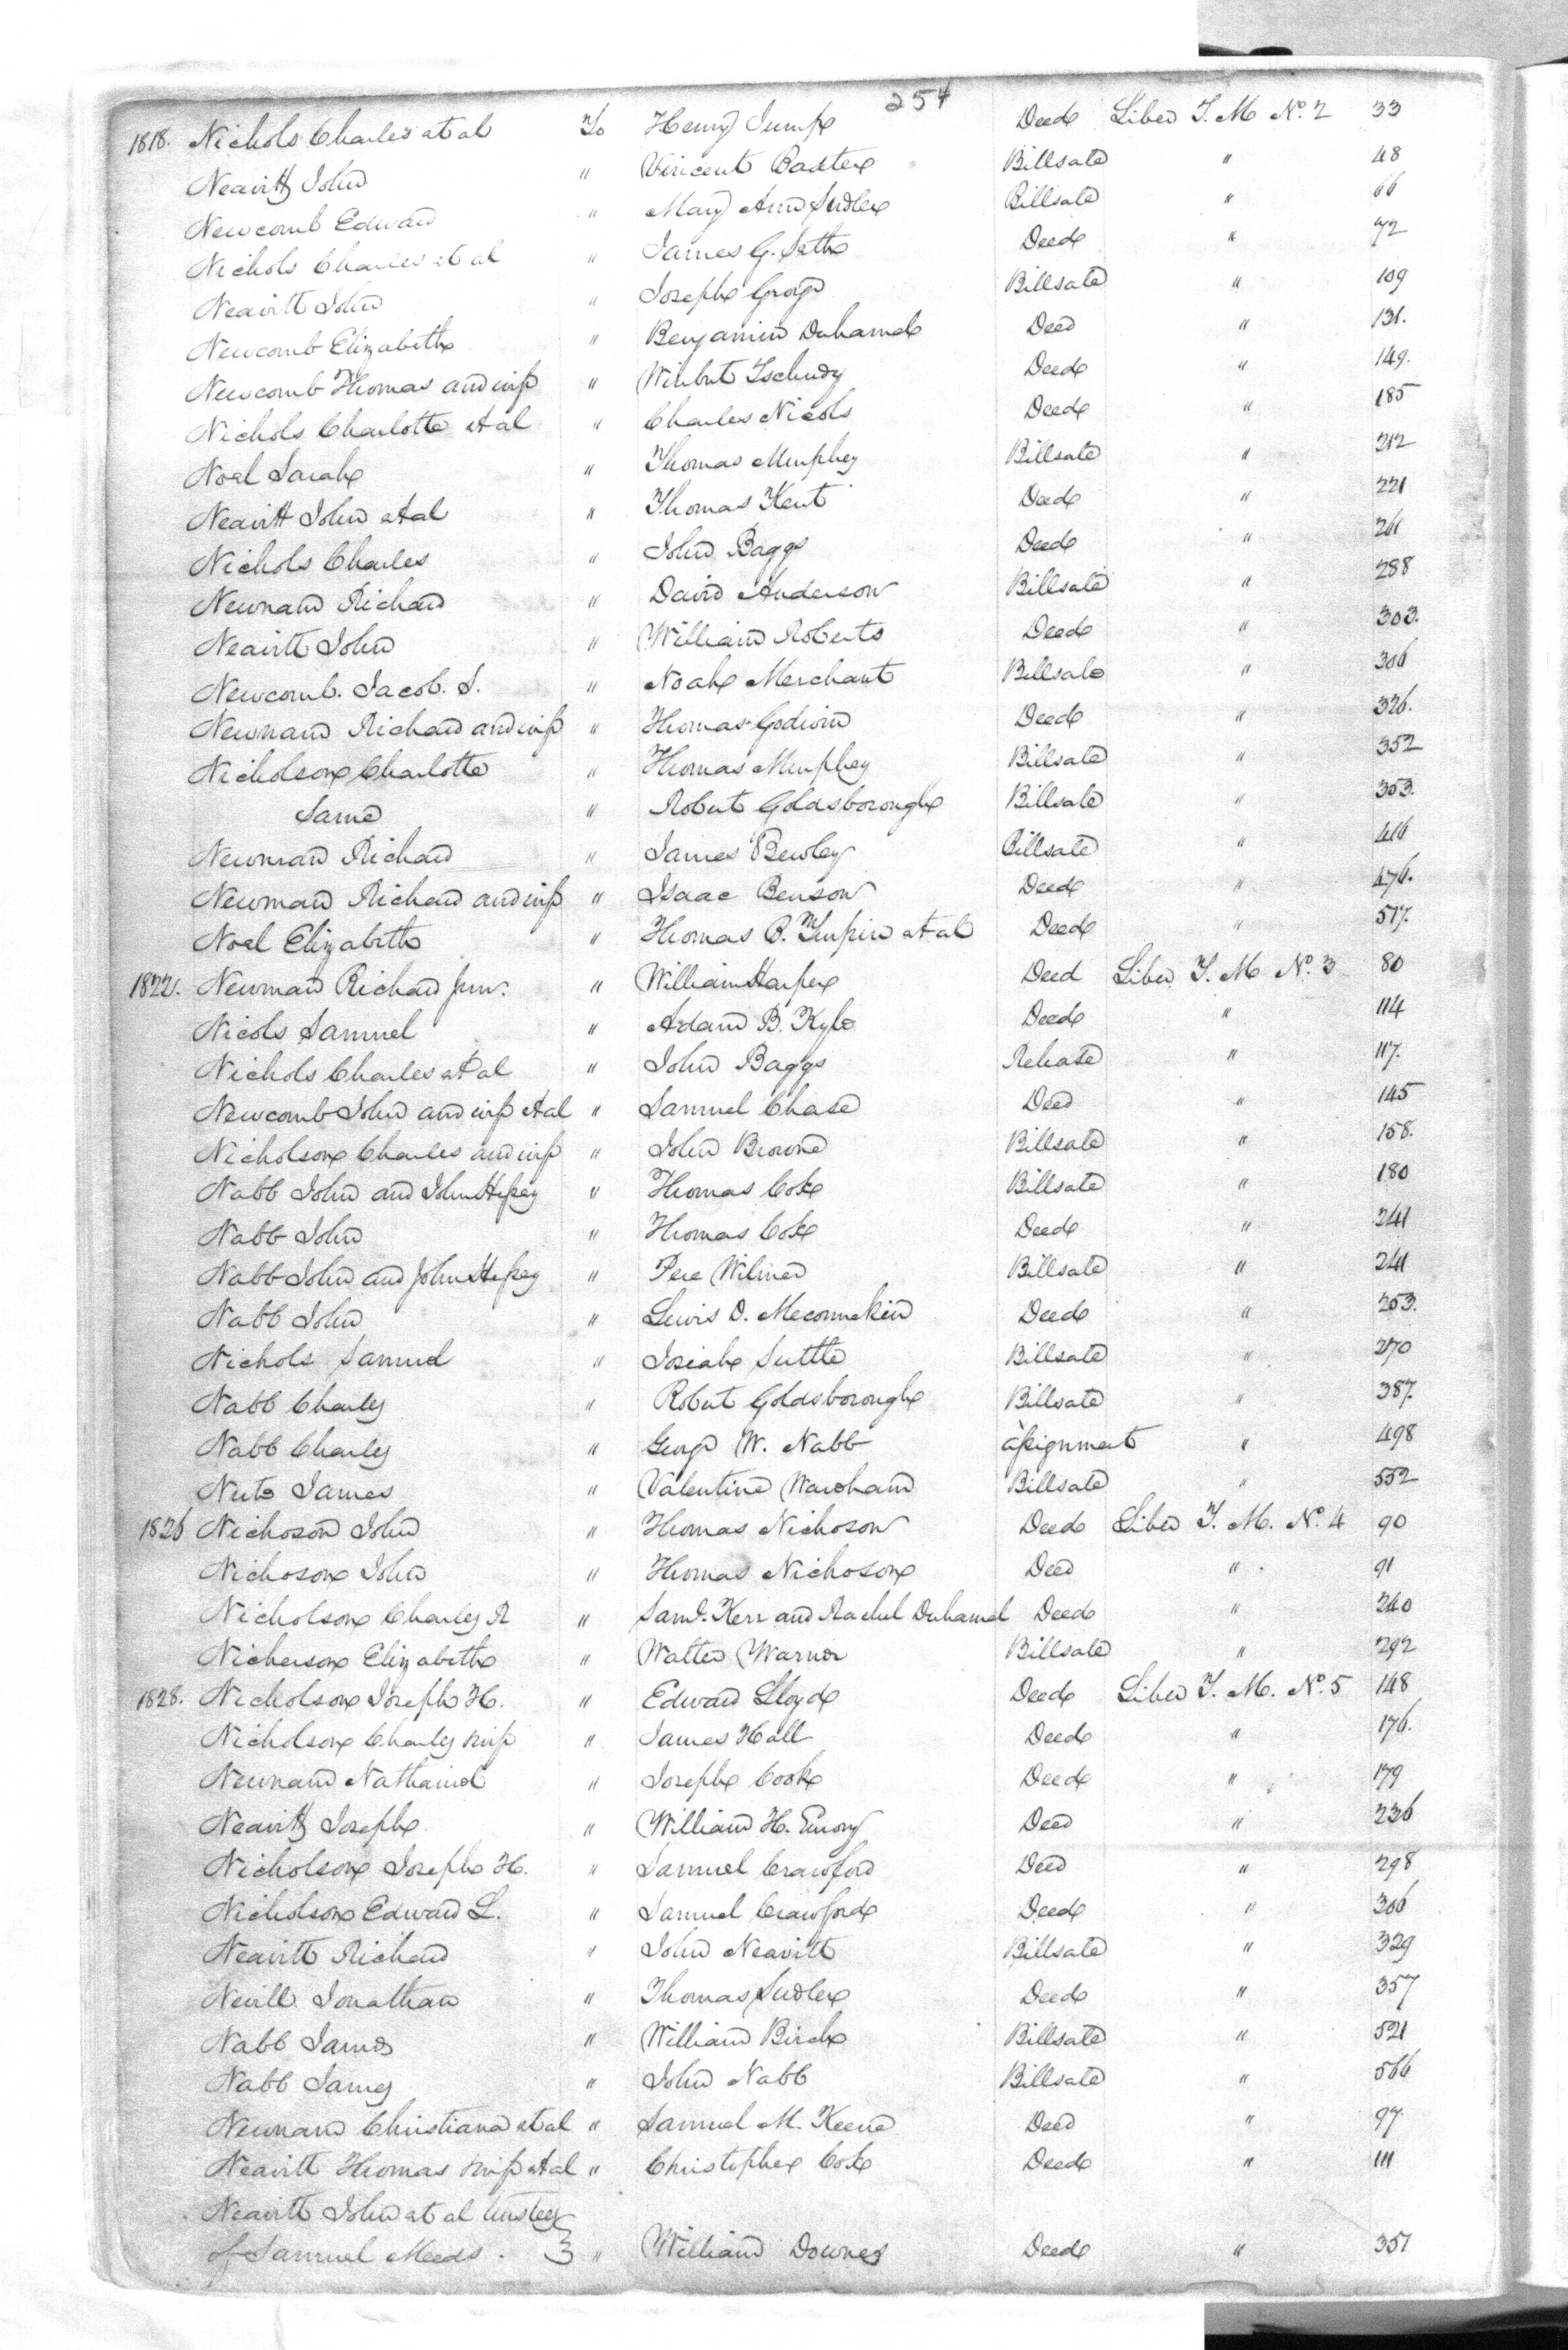 254
1818. Nichols Charles et al To Henry Jump Deed Liber T. M No. 2 33
Neavitt John " Vincent Baxter Billsale " 48
Newcomb Edward " Mary Ann Sudler Billsale " 66
Nichols Charles et al " James G. Seth Deed " 72
Neavitt John " Joseph George Billsale " 109
Newcomb Elizabeth " Benjamin Duhamel Deed " 131.
Newcomb Thomas and wife " Winbert Tschudy Deed " 149.
Nichols Charlotte et al " Charles Nicols Deed " 185
Noel Sarah " Thomas Murphey Billsale " 212
Neavitt John et al " Thomas Kent Deed " 221
Nichols Charles " John Baggs Deed " 261
Newnam Richard " David Anderson Billsale " 288
Neavitt John " William Roberts Deed " 303.
Newcomb. Jacob. S. " Noah Merchant Billsale " 306
Newnam Richard and wife " Thomas Godwin Deed " 326.
Nicholson Charlotte " Thomas Murphey Billsale " 352
Same " Robert Goldsborough Billsale " 353.
Newman Richard " James Bewley Billsale " 416
Newman Richard and wife " Isaac Benson Deed " 476.
Noel Elizabeth " Thomas B. Turpin et al Deed " 517.
1822. Newman Richard Junr. " William Harper Deed Liber T. M No. 3 80
Nicols Samuel " Adam B. Kyle Deed " 114
Nichols Charles et al " John Baggs Release " 117.
Newcomb John and wife et al " Samuel Chase Deed " 145
Nicholson Charles and wife " John Brown Billsale " 158.
Nabb John and John " Thomas Cox Billsale " 180
Nabb John " Thomas Cox Deed " 241
Nabb John and John " Pere Wilmer Billsale " 241
Nabb John " Lewis D. Meconnekin Deed " 253.
Nichols Samuel " Josiah Suttle Billsale " 270
Nabb Charles " Robert Goldsborough Billsale " 387.
Nabb Charles " George W. Nabb assignment " 498
Nuts James " Valentine Warham Billsale " 552
1826 Nichoson John " Thomas Nichoson Deed Liber T. M. No. 4 90
Nichoson John " Thomas Nichoson Deed " 91
Nicholson Charles R " Saml. Kerr and Rachel Duhamel Deed " 240
Nicherson Elizabeth " Walter Warner Billsale " 292
1828. Nicholson Joseph H. " Edward Lloyd Deed Liber T. M. No. 5 148
Nicholson Charles & wife " James Hall Deed " 176.
Newnam Nathaniel " Joseph Cook Deed " 179
Neavitt Joseph " William H. Emory Deed " 236
Nicholson Joseph H. " Samuel Crawford Deed " 298
Nicholson Edward L. " Samuel Crawford Deed " 306
Neavitt Richard " John Neavitt Billsale " 329
Nevill Jonathan " Thomas Sudler Deed " 357
Nabb James " William Birch Billsale " 521
Nabb James " John Nabb Billsale " 566
Newnam Christiana et al " Samuel M. Keene Deed " 97
Neavitt Thomas & wife et al " Christopher Cox Deed " 111
Neavitt John et al trustees
of Samuel Meeds. " William Downes Deed " 351